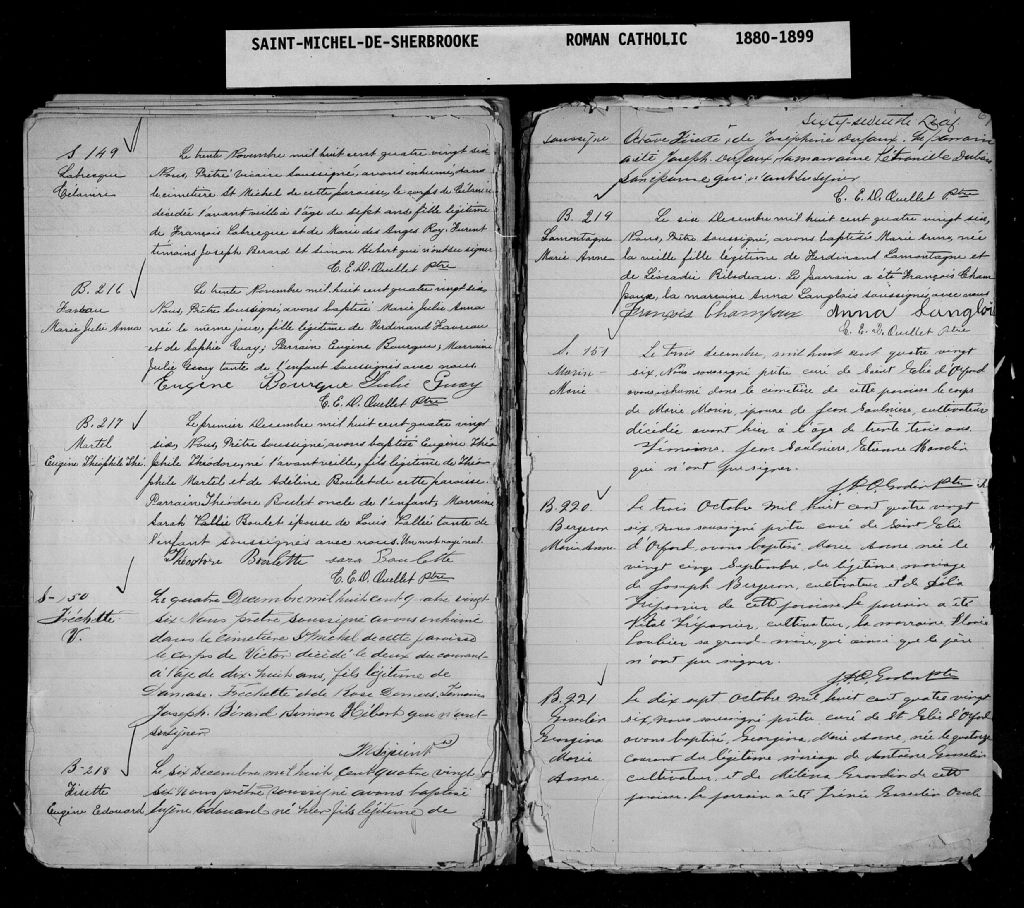 SAINT-MICHEL-DE-SHERBROOKE ROMAN CATHOLIC 1880-1899
S 149
Labrecque
Célanire
Le trente Novembre mil huit cent quatre vingt six
Nous, Prêtre Vicaire soussigné, avons inhumé, dans
le cimetière St Michel de cette paroisse, le corps de Célanire
décédée l'avant veille à l'âge de sept ans fille légitime
de François Labrecque et de Marie des Anges Roy. Furent
témoins Joseph Berard et Simon Hebert qui n'ont su signer
C. E. D. Ouellet Ptre
B. 216
Favreau
Marie Julie Anna
Le trente Novembre mil huit cent quatre vingt six,
Nous, Prêtre soussigné, avons baptisé Marie Julie Anna
née le même jour, fille légitime de Ferdinand Favreau
et de Sophie Guay; Parrain Eugène Bourque; Marraine
Julie Guay tante de l'enfant soussignés avec nous.
Eugène Bourque Julie Guay
C. E. D. Ouellet Ptre
B. 217
Martel
Eugène Théophile Thé.
Le premier Decembre mil huit cent quatre vingt
six, Nous, Prêtre soussigné, avons baptisé Eugène Théo-
phile Théodore, né l'avant veille, fils légitime de Théo-
phile Martel et de Adéline Boulet de cette paroisse.
Parrain Théodore Boulet oncle de l'enfant, Marraine
Sarah Vallée Boulet épouse de Louis Vallée tante de
l'enfant soussignés avec nous. Un mot rayé nul
Théodore Boulette sara Boulette
C. E. D. Ouellet Ptre
S - 150
Fréchette
V.
Le quatre Decembre mil huit cent quatre vingt
six Nous prêtre soussigné avons inhumé
dans le cimetière St Michel de cette paroisse
le corps de Victor décédé le deux du courant
à l'âge de dix huit ans, fils légitime de
Damase Fréchette et de Rose Temoins
Joseph Bérard Simon Hébert qui n'ont
su signer
B - 218
Fisette
Eugène Edouard
Le six Decembre mil huit cent quatre vingt
six Nous prêtre soussigné avons baptisé
Eugène Edouard né hier fils légitime de
Sixty-seventh Leaf
soussigné
Octave Fisette, de Joséphine Dufaux. Le parrain
a été Joseph Dufaux, la marraine Pétronille
qui n'ont su signer
C. E. D. Ouellet Ptre
B. 219
Lamontagne
Marie Anne
Le six Decembre mil huit cent quatre vingt six,
Nous, Prêtre soussigné, avons baptisé Marie Anne, née
la veille fille légitime de Ferdinand Lamontagne et
de Léocadie Bibodeau. Le parrain a été François Cham
poux, la marraine Anna Langlois soussignés avec nous
François Champoux Anna Langlois
C. E. D. Ouellet Ptre
S. 151
Morin -
Marie
Le trois decembre, mil huit cent quatre vingt
six, Nous soussigné ptre curé de Saint Elie d'Orford
avons inhumé dans le cimetière de cette paroisse le corps
de Marie Morin, épouse de Jean Saulnier, cultivateur
décédée avant hier à l'âge de trente trois ans.
Témoins, Jean Saulnier, Etienne
qui n'ont pu signer.
B. 220
Bergeron
Marie Anne
Le trois Octobre mil huit cent quatre vingt
six nous soussigné prêtre curé de Saint Elie
d'Orford, avons baptisé Marie Anne née le
vingt cinq Septembre, du légitime mariage
de Joseph Bergeron, cultivateur et de Délia
Trépanier de cette paroisse. Le parrain a été
Vital Trépanier, cultivateur, la marraine
Loubier sa grand-mère, qui ainsi que le père
n'ont pu signer.
B. 221
Gosselin
Georgina
Marie
Anne.
Le dix sept Octobre mil huit cent quatre vingt
six, nous soussigné prêtre curé de St Elie d'Orford
avons baptisé, Georgina, Marie Anne, née le quatorze
courant du légitime mariage de Antoine Gosselin
cultivateur, et de Miléna Grondin de cette
paroisse. Le parrain a été Gosselin